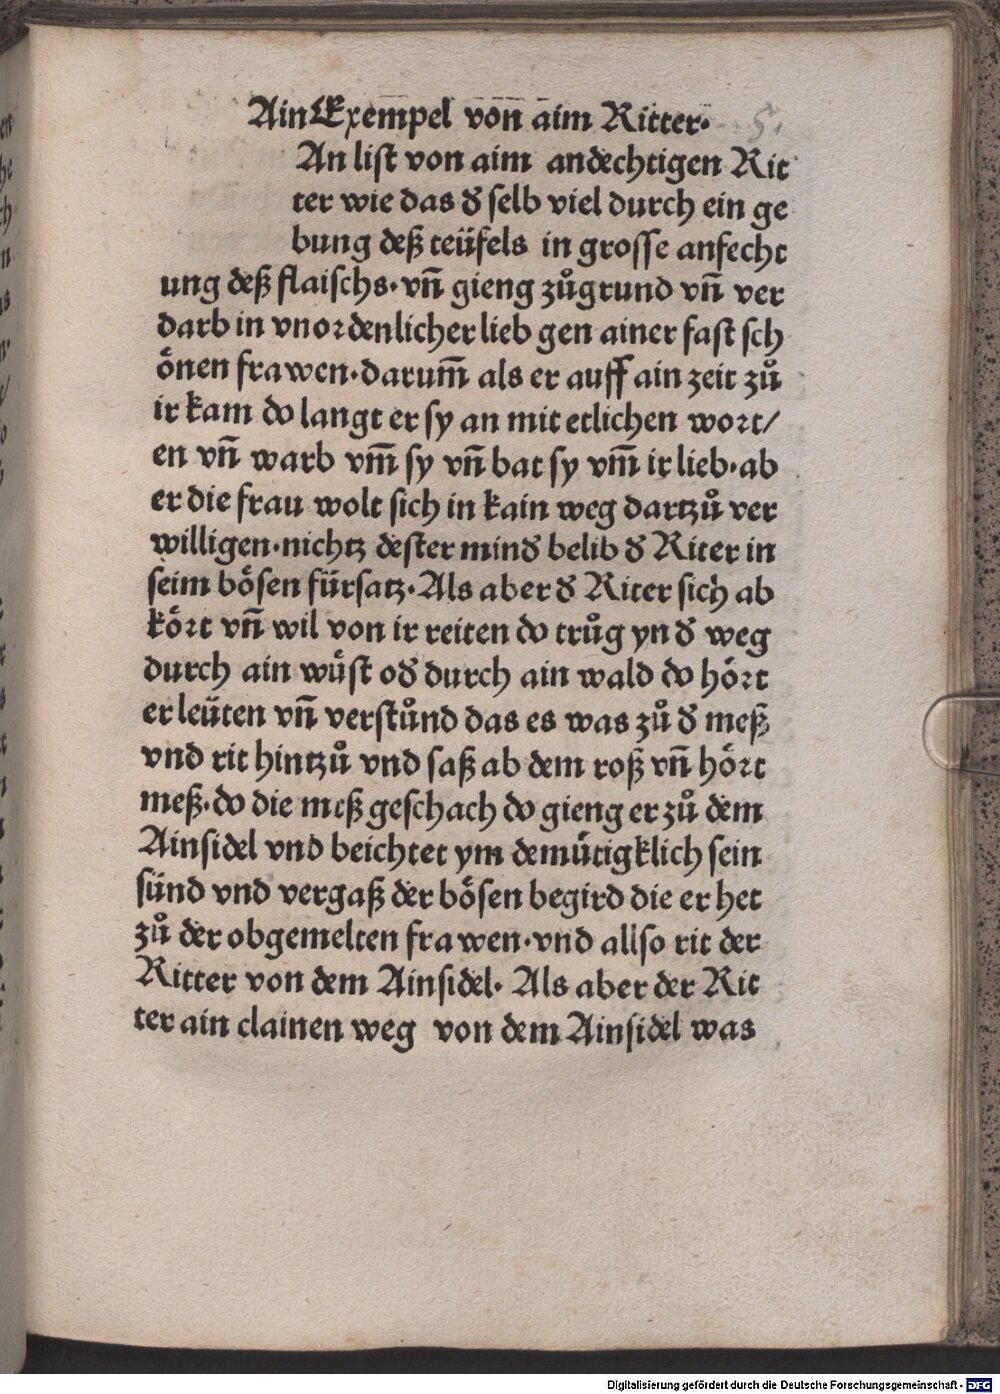 Ain Exempel von aim Ritter·
5.
An list von aim andechtigen Rit
ter wie das d̕ selb viel durch ein ge
bung deß teüfels in grosse anfecht
ung deß flaischs·vn̄ gieng zůgrund vn̄ ver
darb in vnordenlicher lieb gen ainer fast sch
önen frawen·darum̄ als er auff ain zeit zů
ir kam do langt er sy an mit etlichen wort/
en vn̄ warb vm̄ sy vn̄ bat sy vm̄ ir lieb·ab
er die frau wolt sich in kain weg dartzů ver
willigen·nichtz dester mind̕ belib d̕ Riter in
seim bösen fürsatz·Als aber d̕ Riter sich ab
kört vn̄ wil von ir reiten do trůg yn d̕ weg
durch ain wüst od̕ durch ain wald do hört
er leüten vn̄ verstůnd das es was zů d̕ meß
vnd rit hintzů vnd saß ab dem roß vn̄ hört
meß·do die meß geschach do gieng er zů dem
Ainsidel vnd beichtet ym demütigklich sein
sünd vnd vergaß der bösen begird die er het
zů der obgemelten frawen·vnd allso rit der
Ritter von dem Ainsidel· Als aber der Rit
ter ain clainen weg von dem Ainsidel was
Digitalisierung gefördert durch die Deutsche Forschungsgemeinschaft - DFG